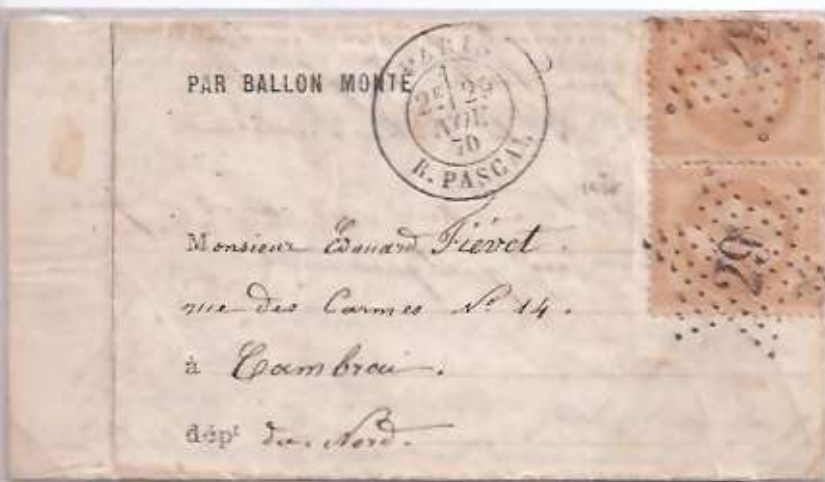 PAR BALLON MONTÉ
PARIS
2E 29
NOV.
70
R. PASCAL
29
Monsieur Edouard Fiévet.
rue des Carmes No 14.
à Cambrai.
dépt du Nord.